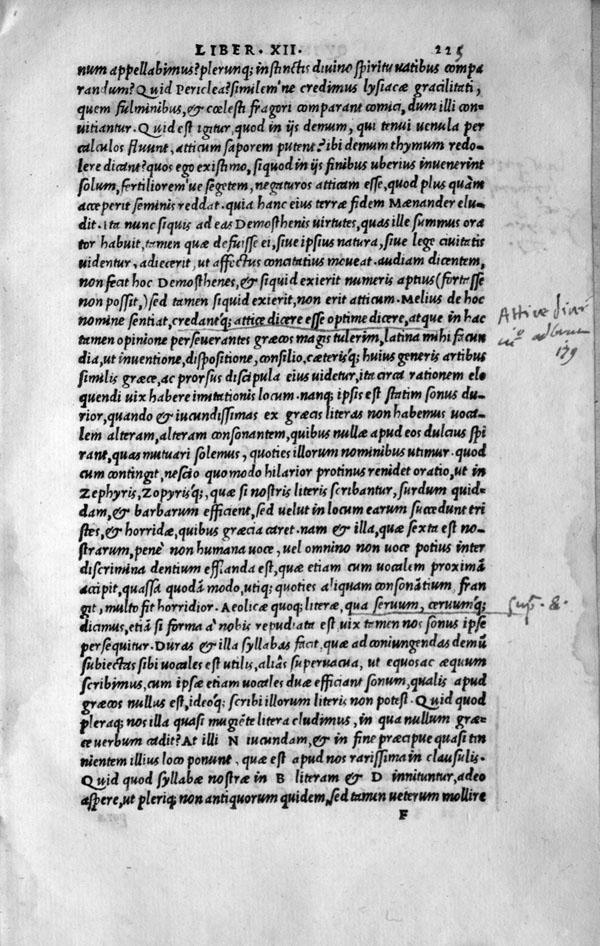 LIBER · XII. 225
num appellabimus? plerunq; instinctis divino spiritu vatibus compa
randum? Quid Periclea? similem'ne credimus lysiacæ gracilitati,
quem fulminibus, & cœlesti fragori comparant comici, dum illi con-
vitiantur. Quid est igitur, quod in ijs demum, qui tenui venula per
calculos fluunt, atticum saporem putent? ibi demum thymum redo-
lere dicant? quos ego existimo, siquod in ijs finibus uberius invenerint
solum, fertiliorem'ue segetem, negaturos atticam esse, quod plus quàm
acceperit seminis reddat. quia hanc eius terræ fidem Mænander elu-
dit. Ita nunc siquis ad eas Demosthenis virtutes, quas ille summus ora
tor habuit, tamen quæ defuisse ei, sive ipsius natura, sive lege civitatis
videntur, adiecerit, ut affectus concitatius moveat. audiam dicentem,
non fecit hoc Demosthenes, & siquid exierit numeris aptius (fortasse
non possit,) sed tamen siquid exierit, non erit atticum. Melius de hoc
nomine sentiat, credant'q; attice dicere esse optime dicere, atque in hac
tamen opinione perseverantes græcos magis tulerim, latina mihi facun
dia, ut inventione, dispositione, consilio, cæteris'q; huius generis artibus
similis græce, ac prorsus discipula eius videtur, ita circa rationem elo
quendi vix habere imitationis locum. nanq; ipsis est statim sonus du-
rior, quando & iucundissimas ex græcis literas non habemus voca-
lem alteram, alteram consonantem, quibus nullæ apud eos dulcius spi
rant, quas mutuari solemus, quoties illorum nominibus utimur. quod
cum contingit, nescio quo modo hilarior protinus renidet oratio, ut in
Zephyris, Zopyris'q; quæ si nostris literis scribantur, surdum quid-
dam, & barbarum efficient, sed velut in locum earum succedunt tri
stes, & horridæ, quibus græcia caret. nam & illa, quæ sexta est no-
strarum, penè non humana voce, vel omnino non voce potius inter
discrimina dentium efflanda est, quæ etiam cum vocalem proximā
accipit, quassa quodā modo, utiq; quoties aliquam consonātium fran
git, multo fit horridior. Aeolicæ quoq; literæ, qua servum, cervum'q;
dicimus, etiā si forma à nobis repudiata est vix tamen nos sonus ipse
persequitur. Duras & illa syllabas facit, quæ ad coniungendas demū
subiectas sibi vocales est utilis, aliâs supervacua, ut equos ac æquum
scribimus, cum ipsæ etiam vocales duæ efficiant sonum, qualis apud
græcos nullus est, ideoq; scribi illorum literis non potest. Quid quod
pleraq; nos illa quasi mugiēte litera cludimus, in qua nullum græ-
ce verbum cadit? At illi N iucundam, & in fine præcipue quasi tin
nientem illius loco ponunt, quæ est apud nos rarissima in clausulis.
Quid quod syllabæ nostræ in B literam & D innituntur, adeo
aspere, ut pleriq; non antiquorum quidem, sed tamen veterum mollire
F
Attice
179